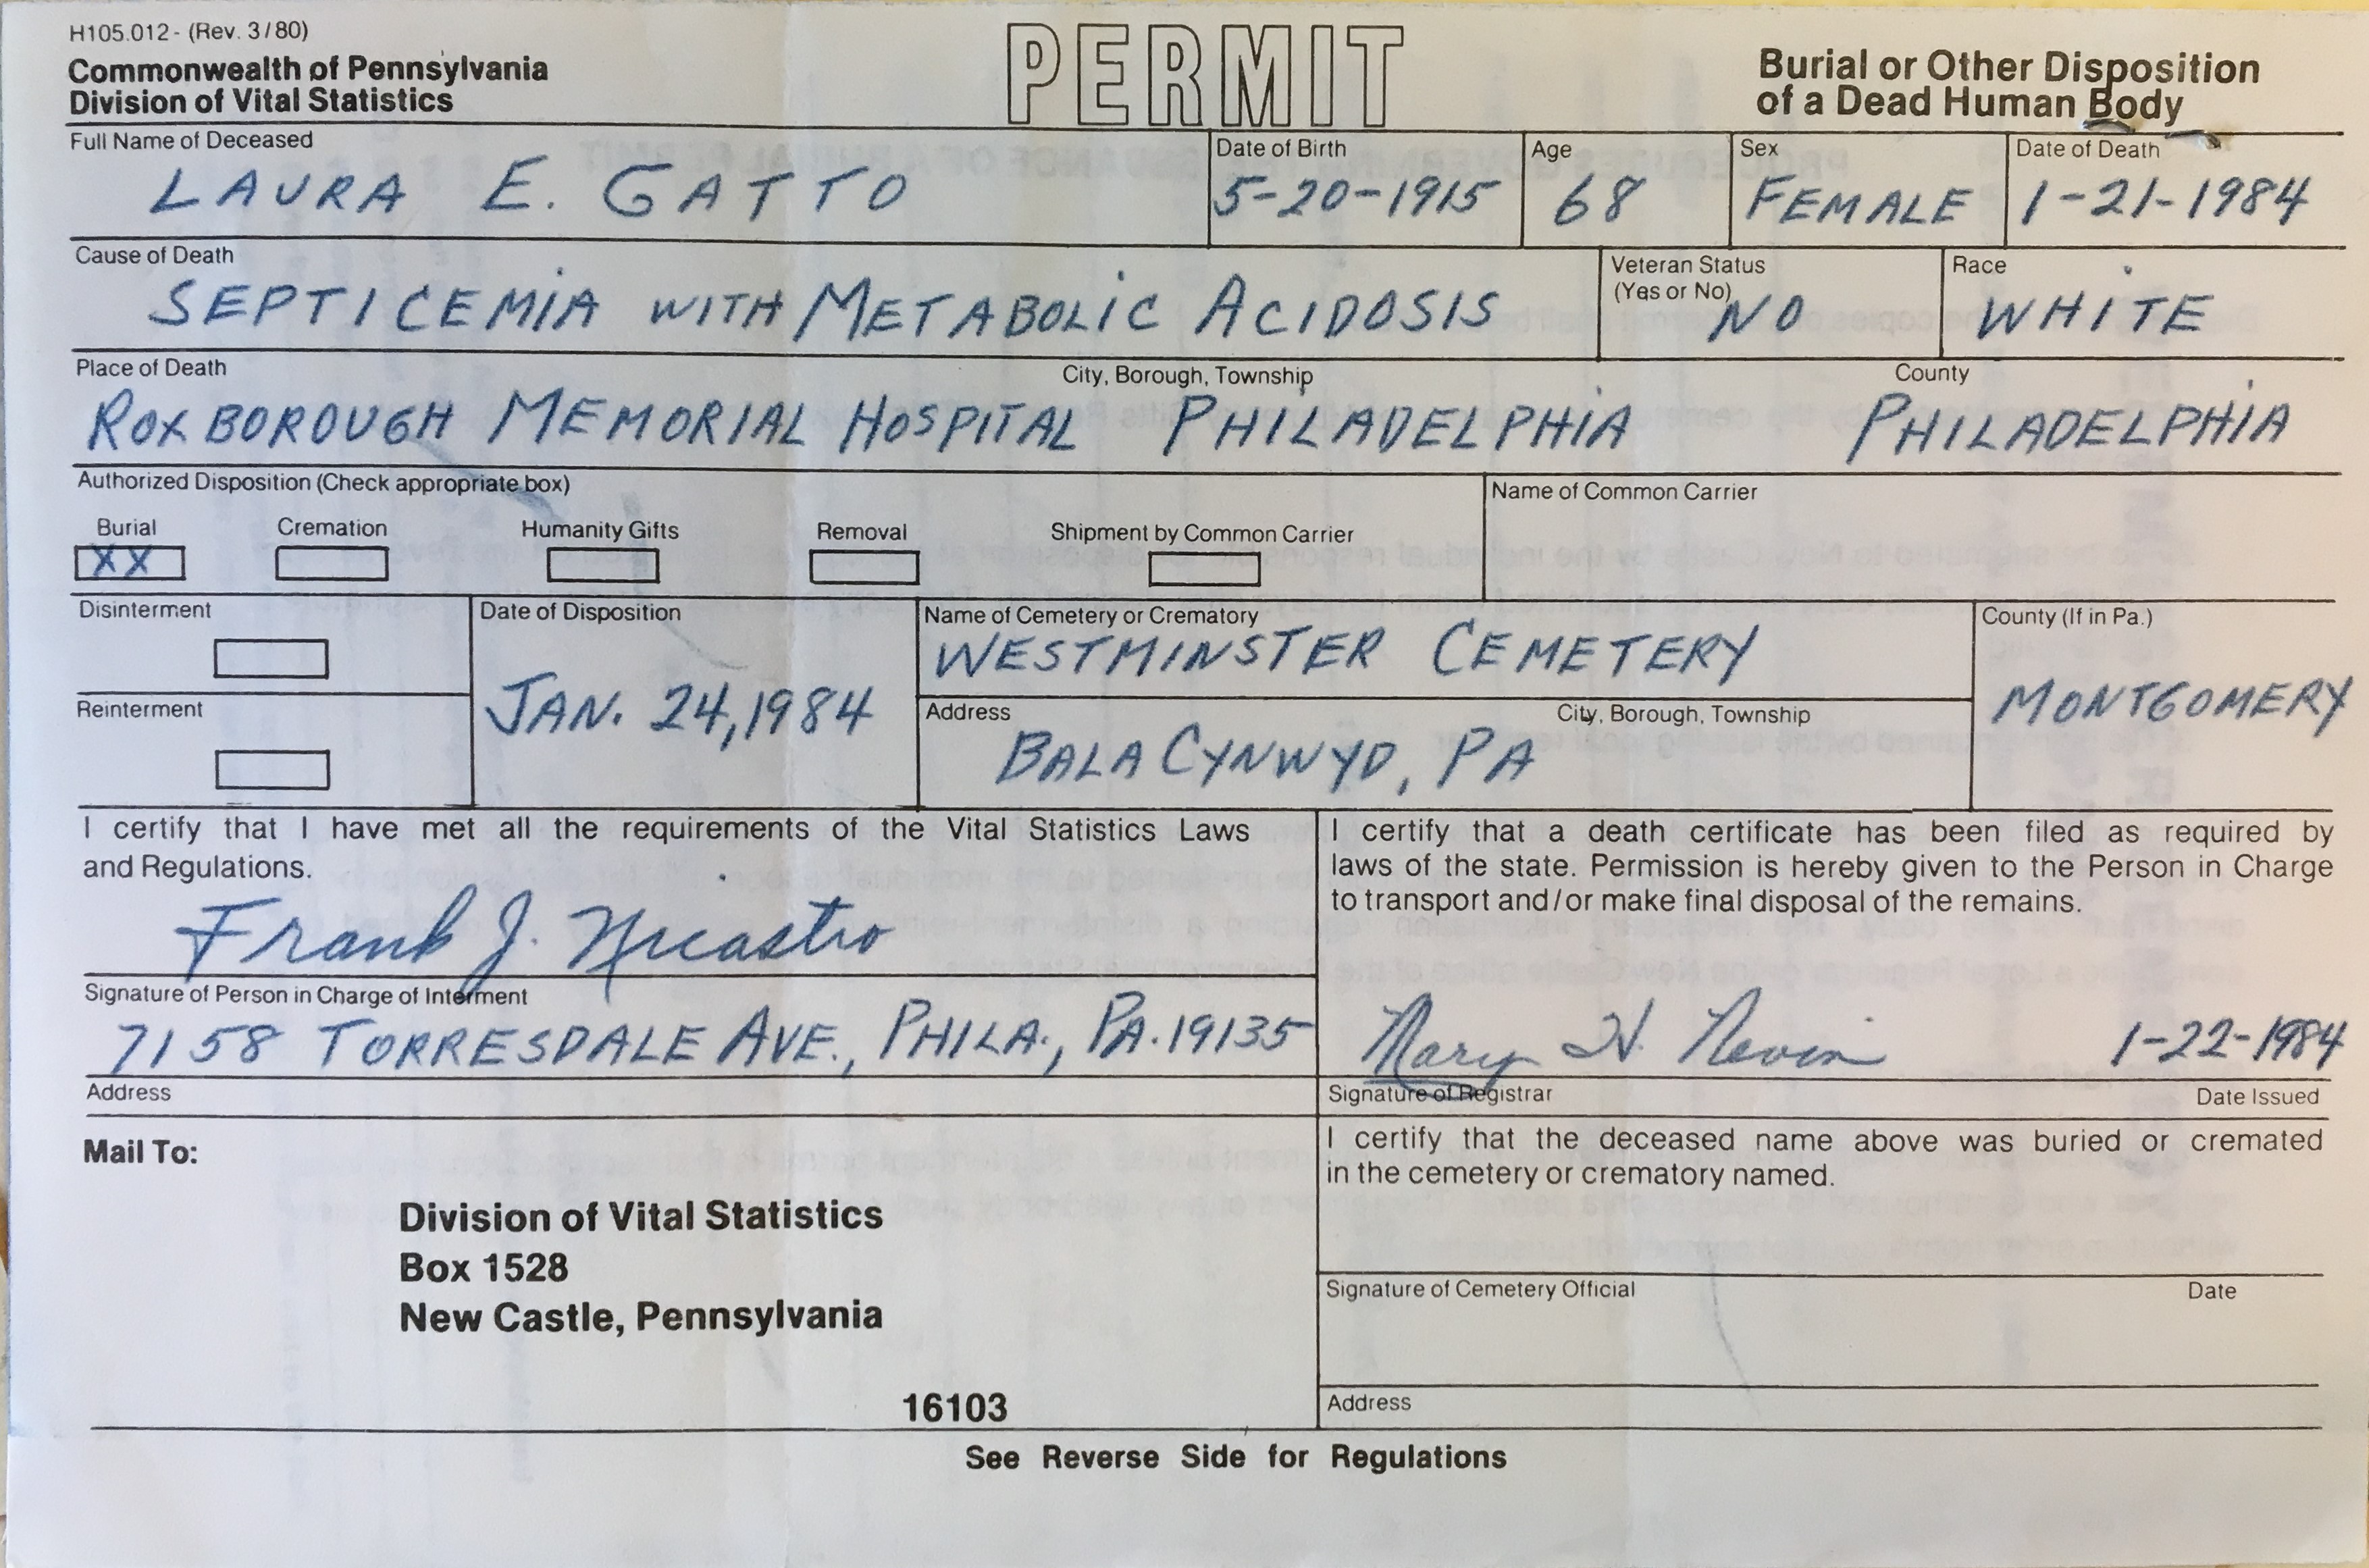 H105.012- (Rev. 3/80)
Commonwealth of Pennsylvania
Division of Vital Statistics
PERMIT
Burial or Other Disposition
of a Dead Human Body
Full Name of Deceased
LAURA E. GATTO
Date of Birth
5-20-1915
Age
68
Sex
FEMALE
Date of Death
1-21-1984
Cause of Death
SEPTICEMIA WITH METABOLIC ACIDOSIS
Veteran Status
(Yes or No)
NO
Race
WHITE
Place of Death
City, Borough, Township
County
ROXBOROUGH MEMORIAL HOSPITAL PHILADELPHIA PHILADELPHIA
Authorized Disposition (Check appropriate box)
Name of Common Carrier
Burial
Cremation
Humanity Gifts
Removal
Shipment by Common Carrier
XX
Disinterment
Reinterment
Date of Disposition
JAN. 24, 1984
Name of Cemetery or Crematory
WESTMINSTER CEMETERY
Address
City, Borough, Township
BALA CYNWYD, PA
County (If in Pa.)
MONTGOMERY
I certify that I have met all the requirements of the Vital Statistics Laws
and Regulations.
Frank J. Nicastro
Signature of Person in Charge of Interment
7158 TORRESDALE AVE., PHILA., PA. 19135
Address
I certify that a death certificate has been filed as required by
laws of the state. Permission is hereby given to the Person in Charge
to transport and/or make final disposal of the remains.
Mary H. Nevin 1-22-1984
Signature of Registrar
Date Issued
Mail To:
Division of Vital Statistics
Box 1528
New Castle, Pennsylvania
16103
I certify that the deceased name above was buried or cremated
in the cemetery or crematory named.
Signature of Cemetery Official
Date
Address
See Reverse Side for Regulations